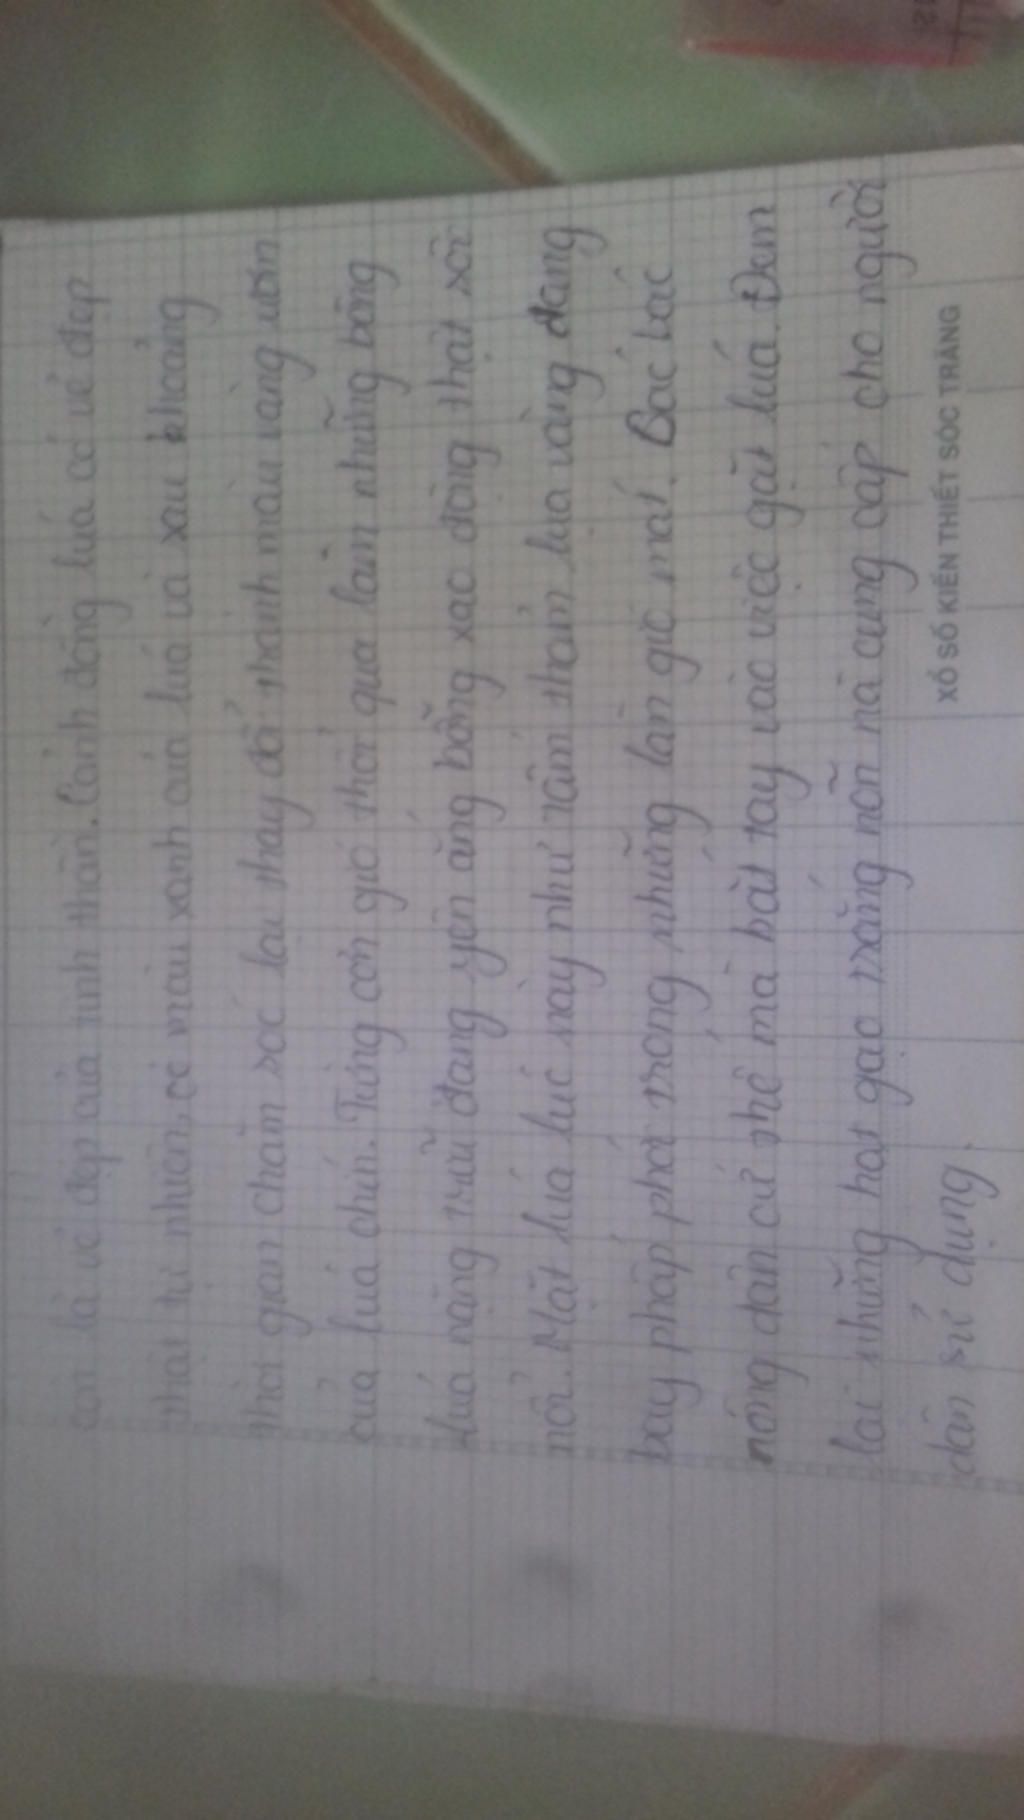 còn là vẻ đẹp của tinh thần. Cánh đồng lúa có vẻ đẹp
thật tự nhiên, có màu xanh của lúa và sau khoảng
thời gian chăm sóc lại thay đổi thành màu vàng ươm
của lúa chín. Từng cơn gió thổi qua làm những bông
lúa nặng trĩu đang yên ắng bỗng xao động thật sôi
nổi. Mặt lúa lúc này như tấm thảm lụa vàng đang
bay phấp phới trong những làn gió mát. Bác bác
nông dân cứ thế mà bắt tay vào việc gặt lúa. Đem
lại những hạt gạo trắng nõn nà cung cấp cho người
dân sử dụng.
XỔ SỐ KIẾN THIẾT SÓC TRĂNG